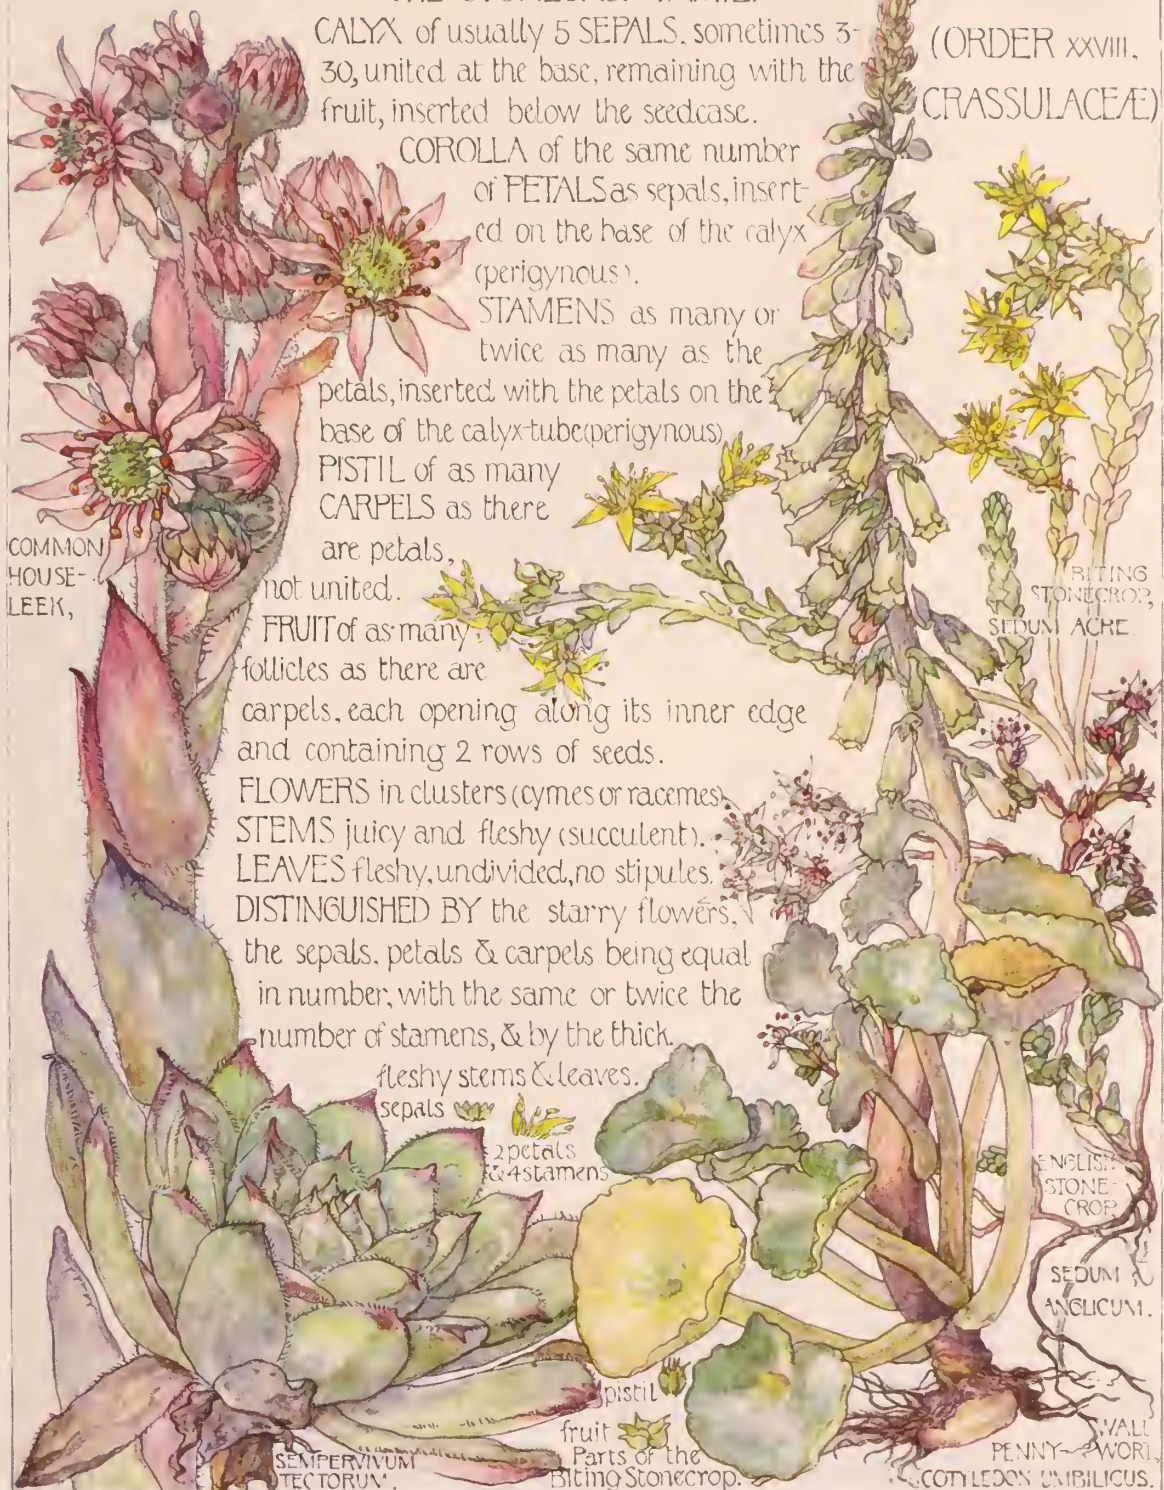 CALYX of usually 5 SEPALS. sometimes 3-
30, united at the base, remaining with the
fruit, inserted below the seedcase.
(ORDER XXVIII.
CRASSULACEÆ)
COROLLA of the same number
of PETALS as sepals, insert-
ed on the base of the calyx
(perigynous).
STAMENS as many or
twice as many as the
petals, inserted with the petals on the
base of the calyx-tube (perigynous)
PISTIL of as many
CARPELS as there
are petals,
not united.
FRUIT of as many
follicles as there are
carpels, each opening along its inner edge
and containing 2 rows of seeds.
FLOWERS in clusters (cymes or racemes)
STEMS juicy and fleshy (succulent).
LEAVES fleshy, undivided, no stipules.
DISTINGUISHED BY the starry flowers,
the sepals, petals & carpels being equal
in number, with the same or twice the
number of stamens, & by the thick.
fleshy stems & leaves.
sepals
2 petals
& 4 stamens
pistil
fruit
Parts of the
Biting Stonecrop.
COMMON
HOUSE-
LEEK,
SEMPERVIVUM
TECTORUM.
BITING
STONECROP,
SEDUM ACRE.
ENGLISH
STONE-
CROP
SEDUM
ANGLICUM.
WALL
PENNY-WORT,
COTYLEDON UMBILICUS.